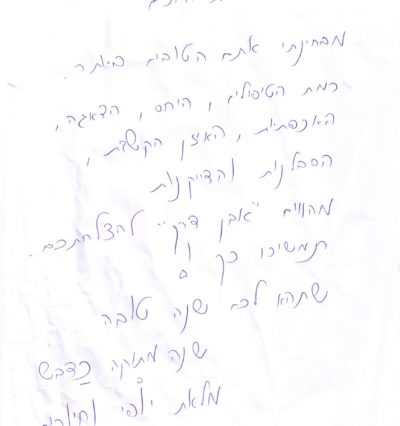 מבחינתי אתם הטובים ביותר.
רמת הטיפולים, היחס, הדאגה,
האכפתיות, האוזן הקשבת,
הסבלנות והדייקנות
מהווים "אבן דרך" להצלחתכם.
תמשיכו כך!
שתהא לכם שנה טובה
שנה מתוקה כדבש
מלאת יופי